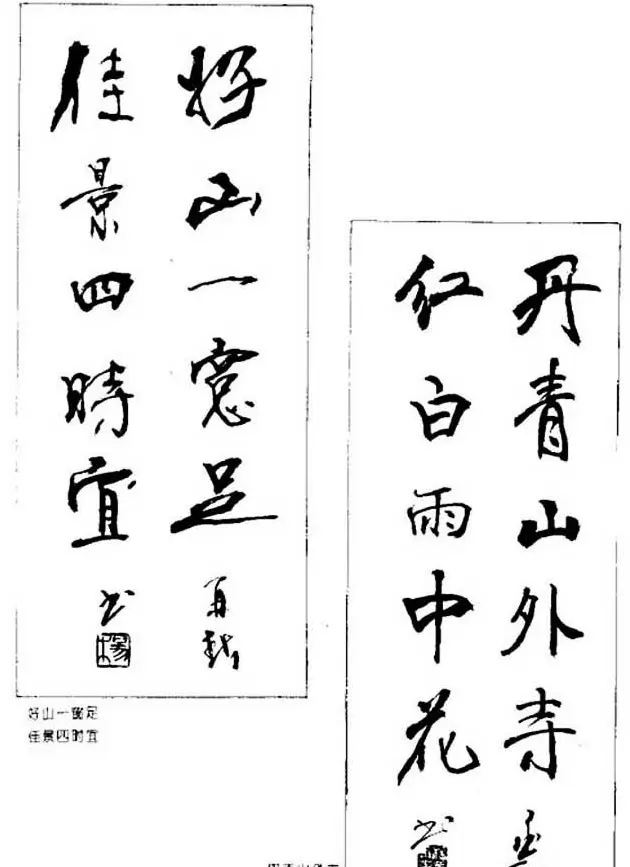 好山一窗足
佳景四時宜
再越书
好山一窗足
佳景四时宜
丹青山外寺
红白雨中花
书